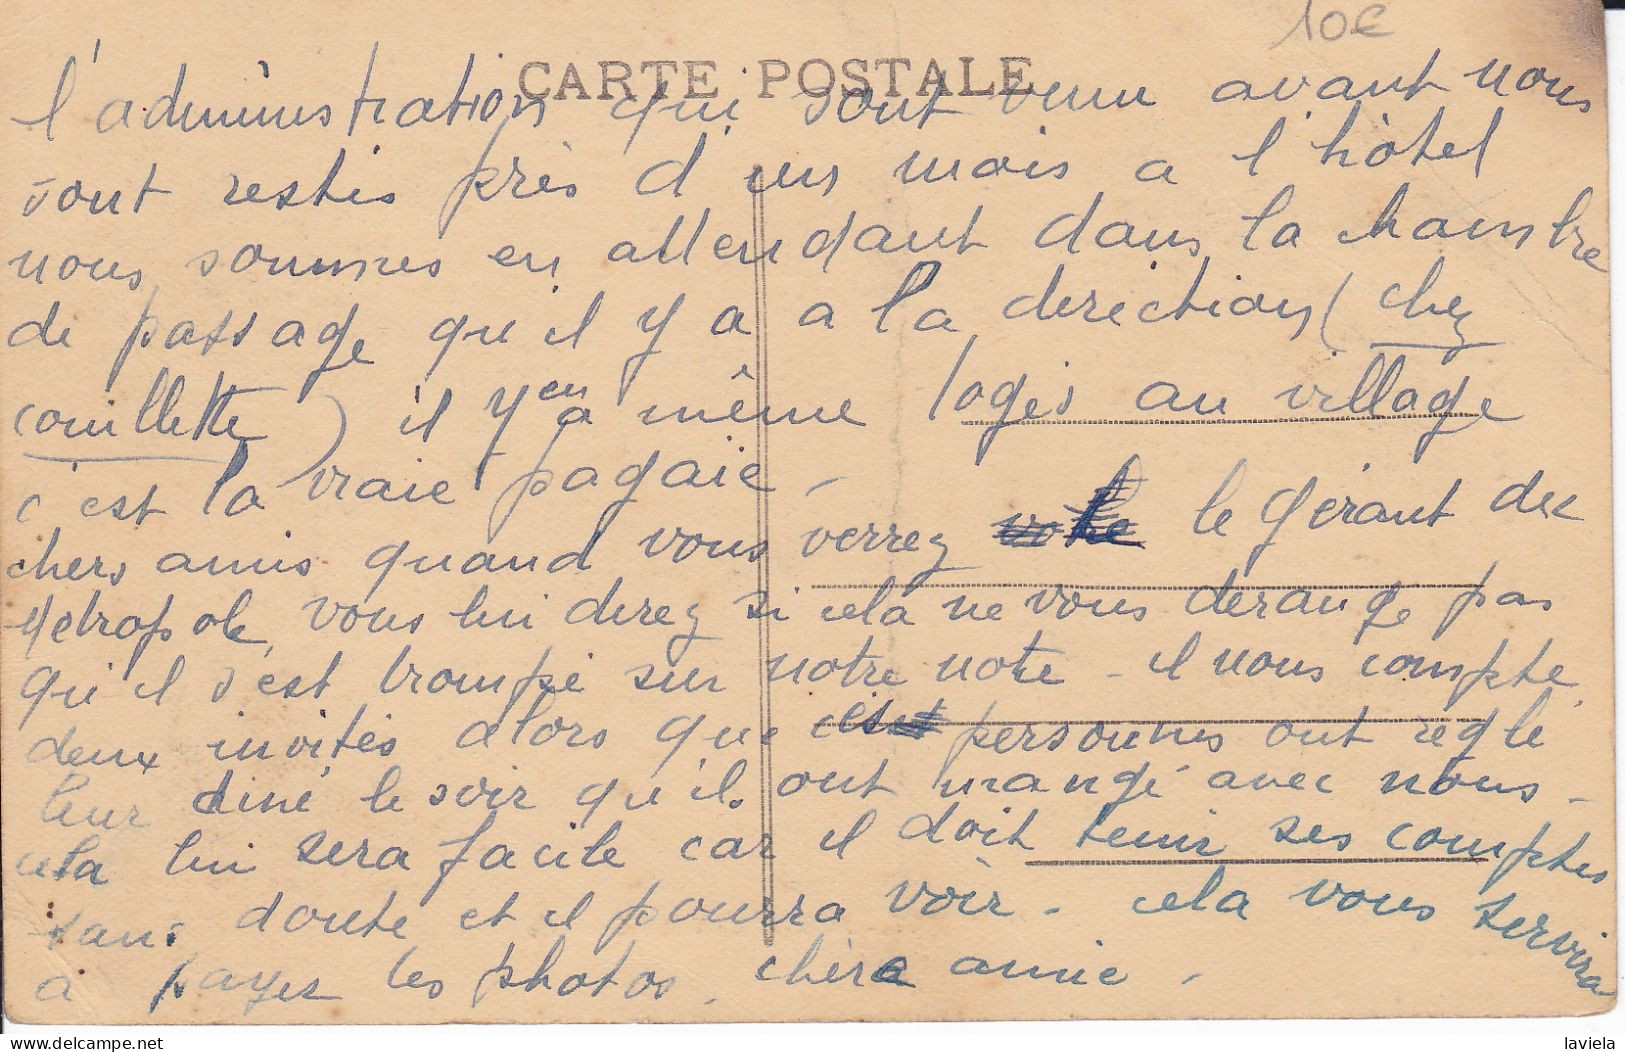 10€
CARTE POSTALE
l'administration qui sont venu avant nous
sont restés près d'un mois a l'hôtel
nous sommes en attendant dans la chambre
de passage qu'il y a a la direction (chez
couillette) il y en a même logés au village
c'est la vraie pagaïe -
chers amis quand vous verrez le gérant des
Metropole, vous lui direz si cela ne vous derange pas
qu'il s'est trompé sur notre note - il nous compte
deux invités alors que ces personnes ont reglé
leur diné le soir qu'ils ont mangé avec nous -
cela lui sera facile car il doit tenir ses comptes
sans doute et il pourra voir - cela vous servira
a payer les photos. chère amie -
laviela